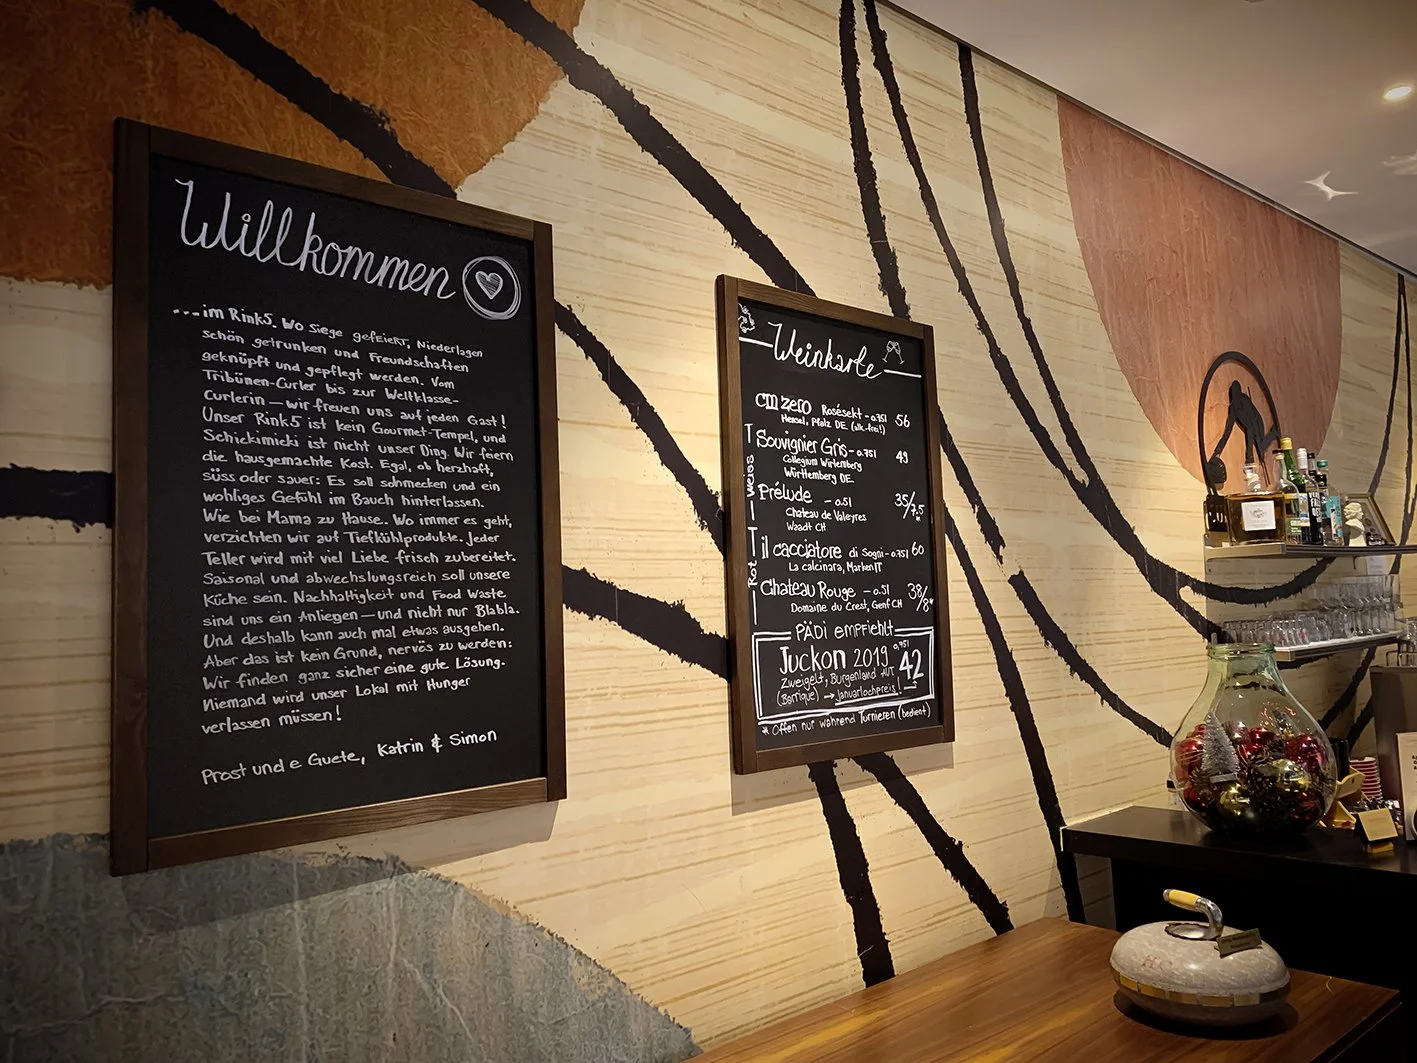 Willkommen
...im Rink5. Wo Siege gefeiert, Niederlagen
schön getrunken und Freundschaften
geknüpft und gepflegt werden. Vom
Tribünen-Curler bis zur Weltklasse-
Curlerin – wir freuen uns auf jeden Gast!
Unser Rink5 ist kein Gourmet-Tempel, und
Schickimicki ist nicht unser Ding. Wir feiern
die hausgemachte Kost. Egal, ob herzhaft,
süss oder sauer: Es soll schmecken und ein
wohliges Gefühl im Bauch hinterlassen.
Wie bei Mama zu Hause. Wo immer es geht,
verzichten wir auf Tiefkühlprodukte. Jeder
Teller wird mit viel Liebe frisch zubereitet.
Saisonal und abwechslungsreich soll unsere
Küche sein. Nachhaltigkeit und Food Waste
sind uns ein Anliegen – und nicht nur Blabla.
Und deshalb kann auch mal etwas ausgehen.
Aber das ist kein Grund, nervös zu werden:
Wir finden ganz sicher eine gute Lösung.
Niemand wird unser Lokal mit Hunger
verlassen müssen!
Prost und e Guete, Katrin & Simon
Weinkarte
cm zero Rosésekt - 0.75l 56
Hensel, Pfalz DE (alk-frei!)
Weiss
Souvignier Gris - 0.75l 49
Collegium Wirtemberg
Württemberg DE
Prélude - 0.5l 35/7.5*
Chateau de Valeyres
Waadt CH
Rot
il cacciatore di Sogni - 0.75l 60
La calcinara, Marken IT
Chateau Rouge - 0.5l 38/8*
Domaine du Crest, Genf CH
PÄDI EMPFIEHLT
Juckon 2019 0,75l 42
Zweigelt, Burgenland AUT
(Barrique) → Januarlochpreis!
* Offen nur während Turnieren (bedient)